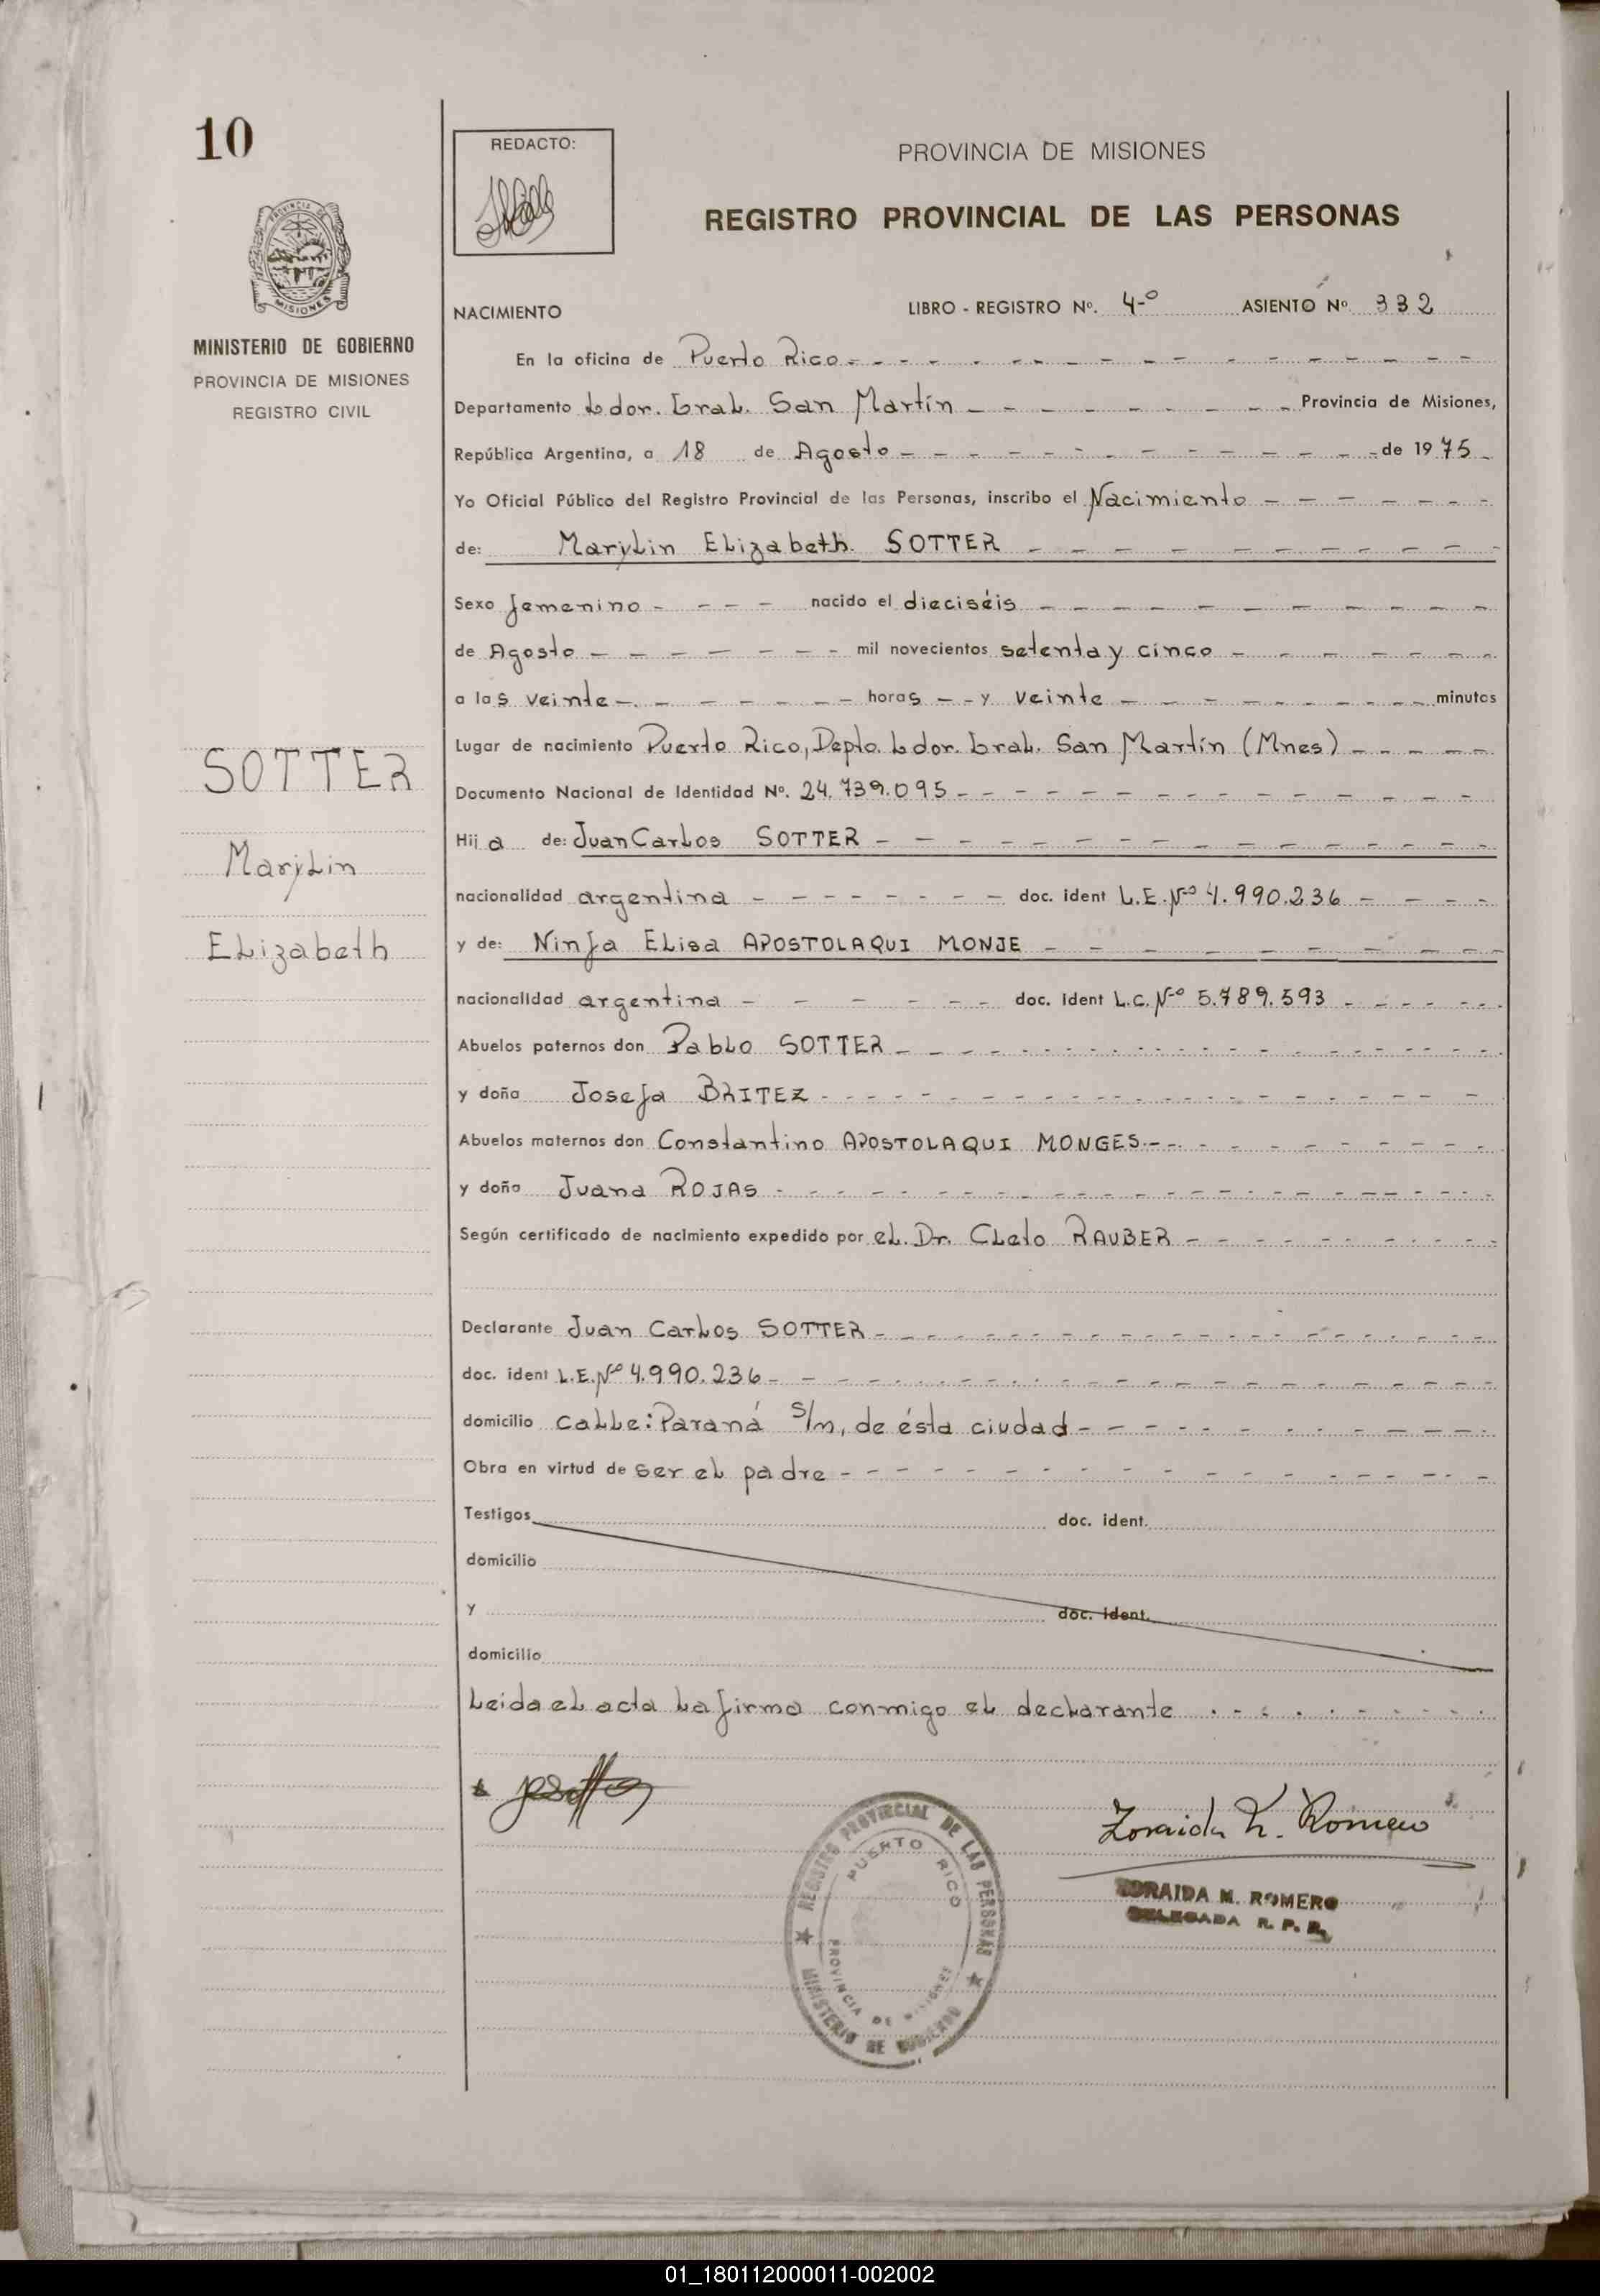 10
REDACTO:
PROVINCIA DE MISIONES
REGISTRO PROVINCIAL DE LAS PERSONAS
PROVINCIA DE
MISIONES
MINISTERIO DE GOBIERNO
PROVINCIA DE MISIONES
REGISTRO CIVIL
NACIMIENTO LIBRO - REGISTRO Nº. 4-º ASIENTO Nº. 332
En la oficina de Puerto Rico
Departamento Ldor. Gral. San Martín Provincia de Misiones,
República Argentina, a 18 de Agosto de 1975
Yo Oficial Público del Registro Provincial de las Personas, inscribo el Nacimiento
de: Marylin Elizabeth SOTTER
Sexo femenino nacido el dieciséis
de Agosto mil novecientos setenta y cinco
a las veinte horas y veinte minutos
Lugar de nacimiento Puerto Rico, Depto. Ldor. Gral. San Martín (Mnes)
Documento Nacional de Identidad Nº. 24.739.095
Hija de: Juan Carlos SOTTER
nacionalidad argentina doc. ident L.E. Nº 4.990.236
y de: Ninfa Elisa APOSTOLAQUI MONJE
nacionalidad argentina doc. ident L.C. Nº 5.789.593
Abuelos paternos don Pablo SOTTER
y doña Josefa BRITEZ
Abuelos maternos don Constantino APOSTOLAQUI MONGES
y doña Juana ROJAS
Según certificado de nacimiento expedido por el Dr. Cleto RAUBER
Declarante Juan Carlos SOTTER
doc. ident L.E. Nº 4.990.236
domicilio calle: Paraná s/n, de ésta ciudad
Obra en virtud de ser el padre
Testigos doc. ident.
domicilio
y doc. ident.
domicilio
Leida el acta la firma conmigo el declarante
SOTTER
Marylin
Elizabeth
Zoraida M. Romero
ZORAIDA M. ROMERO
DELEGADA R. P. P.
REGISTRO PROVINCIAL DE LAS PERSONAS
PUERTO RICO
PROVINCIA DE MISIONES
MINISTERIO DE GOBIERNO
01_180112000011-002002